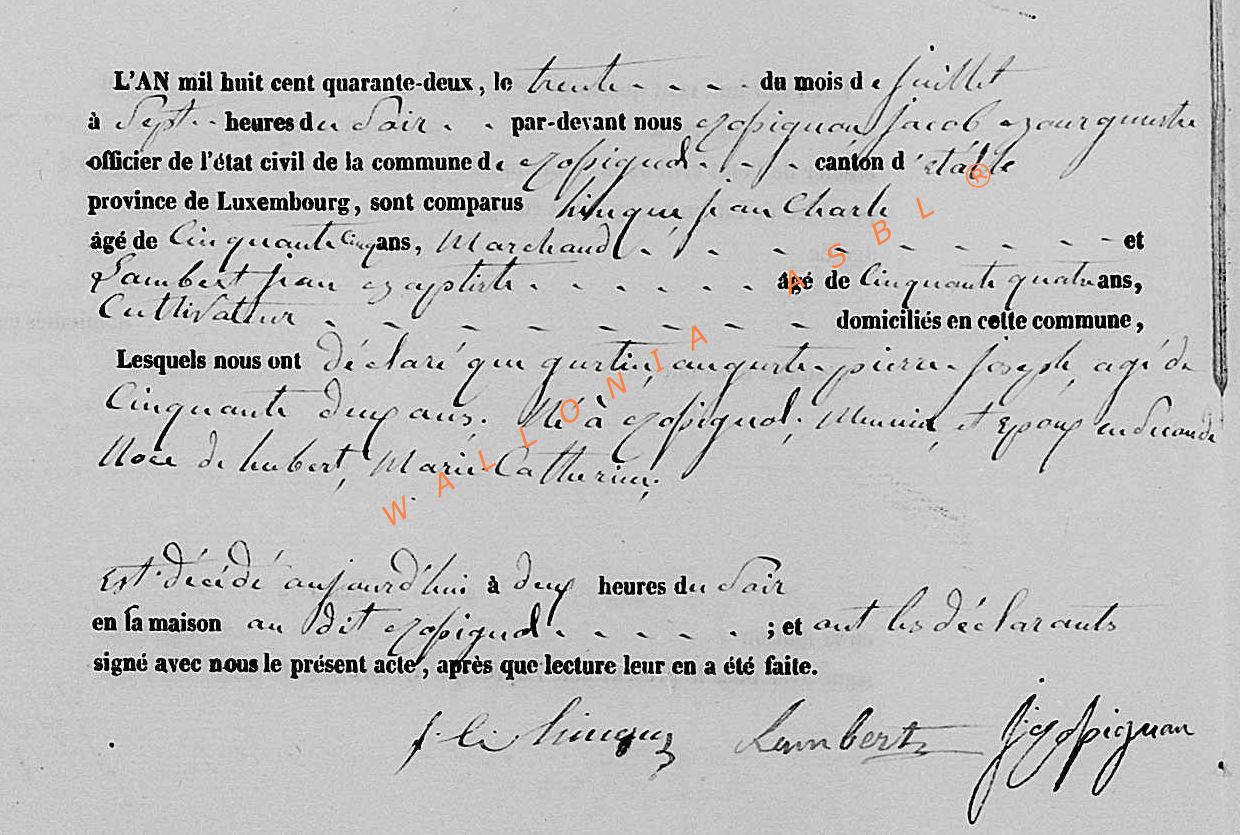 L'AN mil huit cent quarante-deux, le trente - - - - du mois de juillet
à Sept - heures du Soir - - par-devant nous Rossignon jacob Bourgmestre
officier de l'état civil de la commune de Rossignol - - - canton d'étalle
province de Luxembourg, sont comparus hinque jean Charle
âgé de Cinquante Cinq ans, Marchand - - - - - - - - - et
Lambert jean Baptiste - - - - - - âgé de Cinquante quatre ans,
Cultivateur - - - - - - - - domiciliés en cette commune,
Lesquels nous ont déclaré que gustin, auguste pierre joseph, agé de
Cinquante deux ans. Né à Rossignol, Meunier, et Epoux en Seconde
Noce de hubert, Marie Catherine;
Est décédé aujourd'hui à deux heures du Soir
en sa maison au dit Rossignol - - - - - ; et ont les déclarants
signé avec nous le présent acte, après que lecture leur en a été faite.
j. C. hinque Lambert J Rossignon
WALLONIA ASBL ®